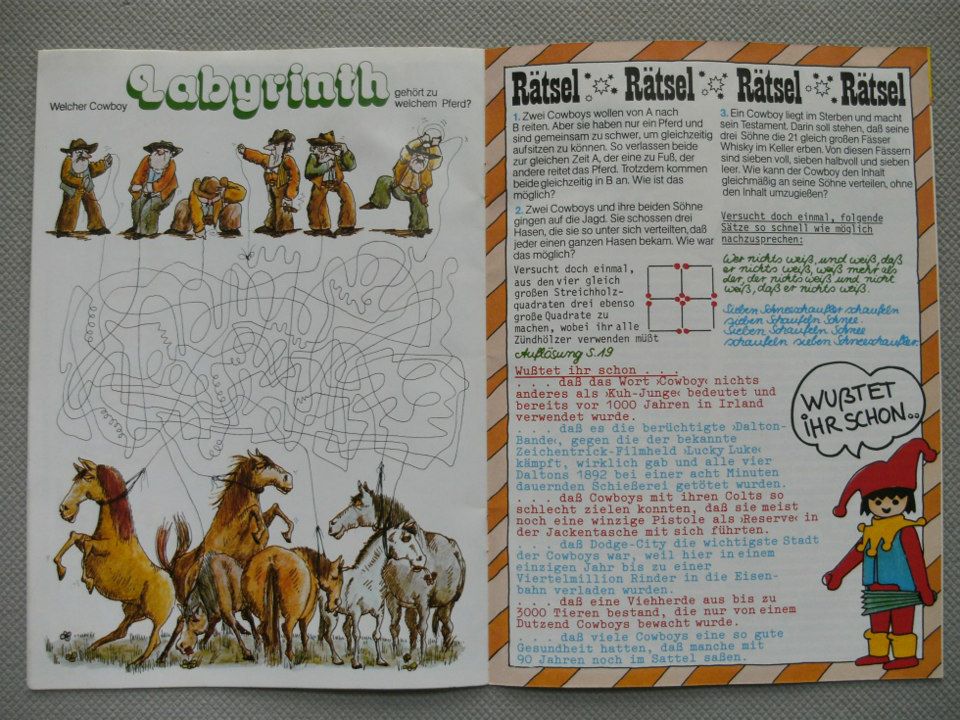 Welcher Cowboy
Labyrinth
gehört zu
welchem Pferd?
Rätsel Rätsel Rätsel Rätsel
1. Zwei Cowboys wollen von A nach
B reiten. Aber sie haben nur ein Pferd und
sind gemeinsam zu schwer, um gleichzeitig
aufsitzen zu können. So verlassen beide
zur gleichen Zeit A, der eine zu Fuß, der
andere reitet das Pferd. Trotzdem kommen
beide gleichzeitig in B an. Wie ist das
möglich?
2. Zwei Cowboys und ihre beiden Söhne
gingen auf die Jagd. Sie schossen drei
Hasen, die sie so unter sich verteilten, daß
jeder einen ganzen Hasen bekam. Wie war
das möglich?
Versucht doch einmal,
aus den vier gleich
großen Streichholz-
quadraten drei ebenso
große Quadrate zu
machen, wobei ihr alle
Zündhölzer verwenden müßt
Auflösung S. 19
3. Ein Cowboy liegt im Sterben und macht
sein Testament. Darin soll stehen, daß seine
drei Söhne die 21 gleich großen Fässer
Whisky im Keller erben. Von diesen Fässern
sind sieben voll, sieben halbvoll und sieben
leer. Wie kann der Cowboy den Inhalt
gleichmäßig an seine Söhne verteilen, ohne
den Inhalt umzugießen?
Versucht doch einmal, folgende
Sätze so schnell wie möglich
nachzusprechen:
Wer nichts weiß, und weiß, daß
er nichts weiß, weiß mehr als
der, der nichts weiß und nicht
weiß, daß er nichts weiß.
Sieben Schneeschaufler schaufeln
sieben Schaufeln Schnee.
Sieben Schaufeln Schnee
schaufeln sieben Schneeschaufler.
Wußtet ihr schon . . .
. . . daß das Wort ›Cowboy‹ nichts
anderes als ›Kuh-Junge‹ bedeutet und
bereits vor 1000 Jahren in Irland
verwendet wurde.
. . . daß es die berüchtigte ›Dalton-
Bande‹, gegen die der bekannte
Zeichentrick-Filmheld ›Lucky Luke‹
kämpft, wirklich gab und alle vier
Daltons 1892 bei einer acht Minuten
dauernden Schießerei getötet wurden.
. . . daß Cowboys mit ihren Colts so
schlecht zielen konnten, daß sie meist
noch eine winzige Pistole als ›Reserve‹ in
der Jackentasche mit sich führten.
. . . daß Dodge-City die wichtigste Stadt
der Cowboys war, weil hier in einem
einzigen Jahr bis zu einer
Viertelmillion Rinder in die Eisen-
bahn verladen wurden.
. . . daß eine Viehherde aus bis zu
3000 Tieren bestand, die nur von einem
Dutzend Cowboys bewacht wurde.
. . . daß viele Cowboys eine so gute
Gesundheit hatten, daß manche mit
90 Jahren noch im Sattel saßen.
WUßTET
IHR SCHON..